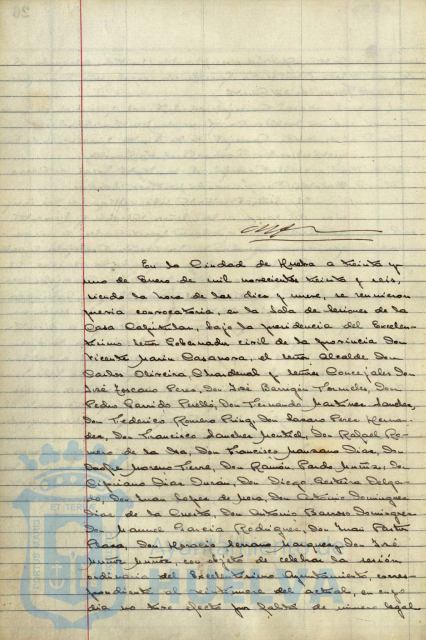 En la Ciudad de Huelva a treinta y
uno de Enero de mil novecientos treinta y seis,
siendo la hora de las diez y nueve, se reunieron
previa convocatoria, en la Sala de Sesiones de la
Casa Capitular, bajo la presidencia del Excelen-
tísimo Señor Gobernador civil de la provincia Don
Vicente Marin Casanova, el señor Alcalde Don
Carlos Oliveira Chardenal y señores Concejales Don
José Toscano Perez, Don José Barrigón Tornelles, Don
Pedro Garrido Perelló, Don Fernando Martinez Sanchez,
Don Federico Romero Don Lazaro Perez Hernan-
dez, Don Francisco Sanchez Don Rafael Ro-
mero de la Don Francisco Manzano Diaz, Don
Moreno Don Ramón Pardo Muñoz, Don
Cipriano Diaz Durán, Don Diego Delga-
do, Don Juan Lopez de Don Antonio Dominguez
Diaz de la Cueva, Don Antonio Barroso Dominguez
Don Manuel Garcia Rodriguez, Don Juan
Don Horacio Soriano Marquez, Don José
Muñoz Muñoz, con objeto de celebrar la sesión
ordinaria del Excelentísimo Ayuntamiento, corres-
pondiente al veintinueve del actual, en cuyo
día no tuvo efecto por falta de número legal